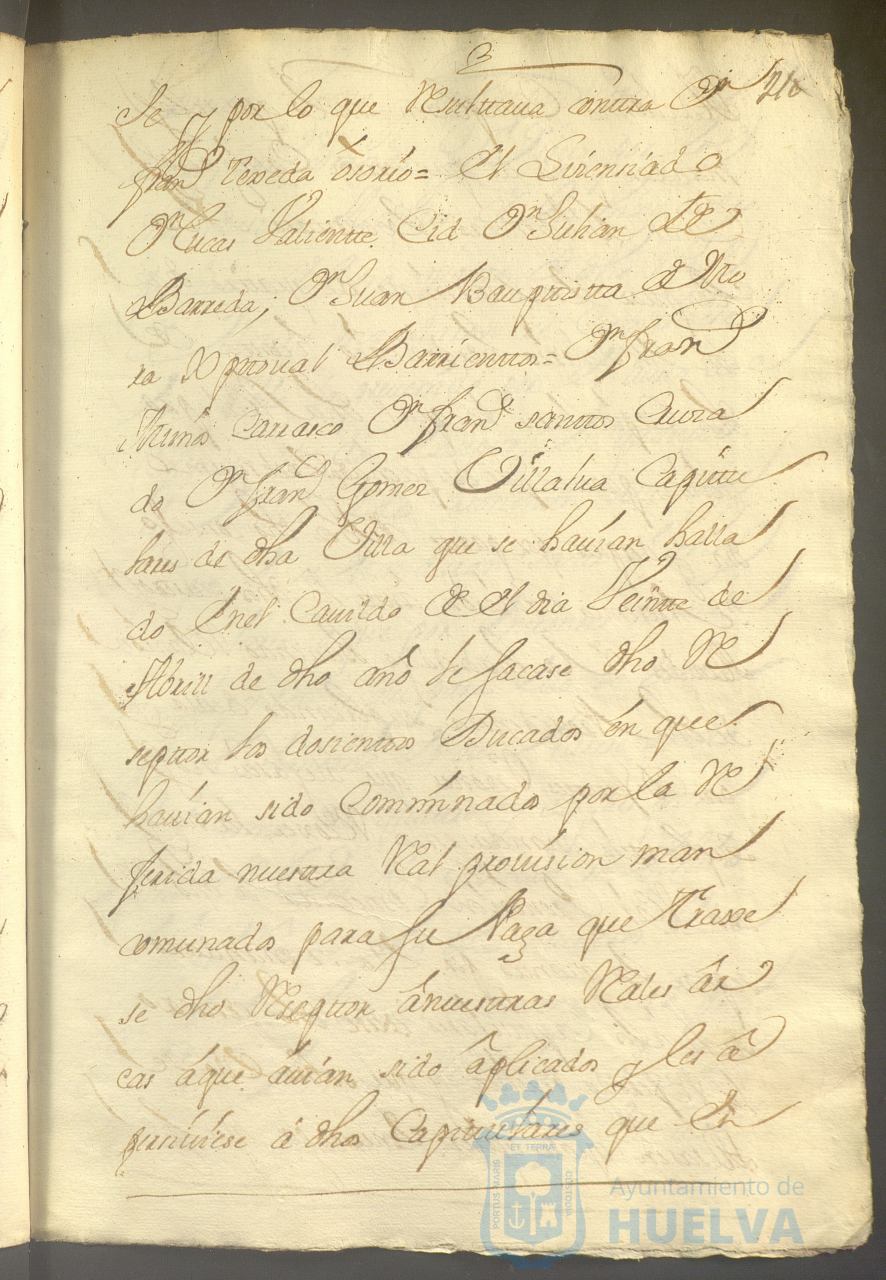 3
210
se y por lo que Resultaua contra Dn
Franco Texeda ôsorio= El Lisensiado
Dn Lucas Valientte Cid Dn Julian de
Barreda, Dn Juan Bauptistta de Mo
ra Xptoual Barrienttos= Dn Franco
Muños Carrasco Dn Franco santtos Cura
do Dn Franco Gomez Villalua Capittu
lares de dha Villa que se hauian halla
do Enel Cauildo de el dia Veintte de
Abrill de dho año le sacase dho Re
septtor los dosientos Ducados en que
hauian sido Comminados por la Re
ferida nuestra Real prouision man
comunados para su Paga que traxe
se dho Reseptor ânuestras Reales âr
cas âque âuian sido âplicados y les â
perciuiese â dhos Capittulares que En
PORTUS MARIS ET TERRAE CUSTODIA
Ayuntamiento de
HUELVA